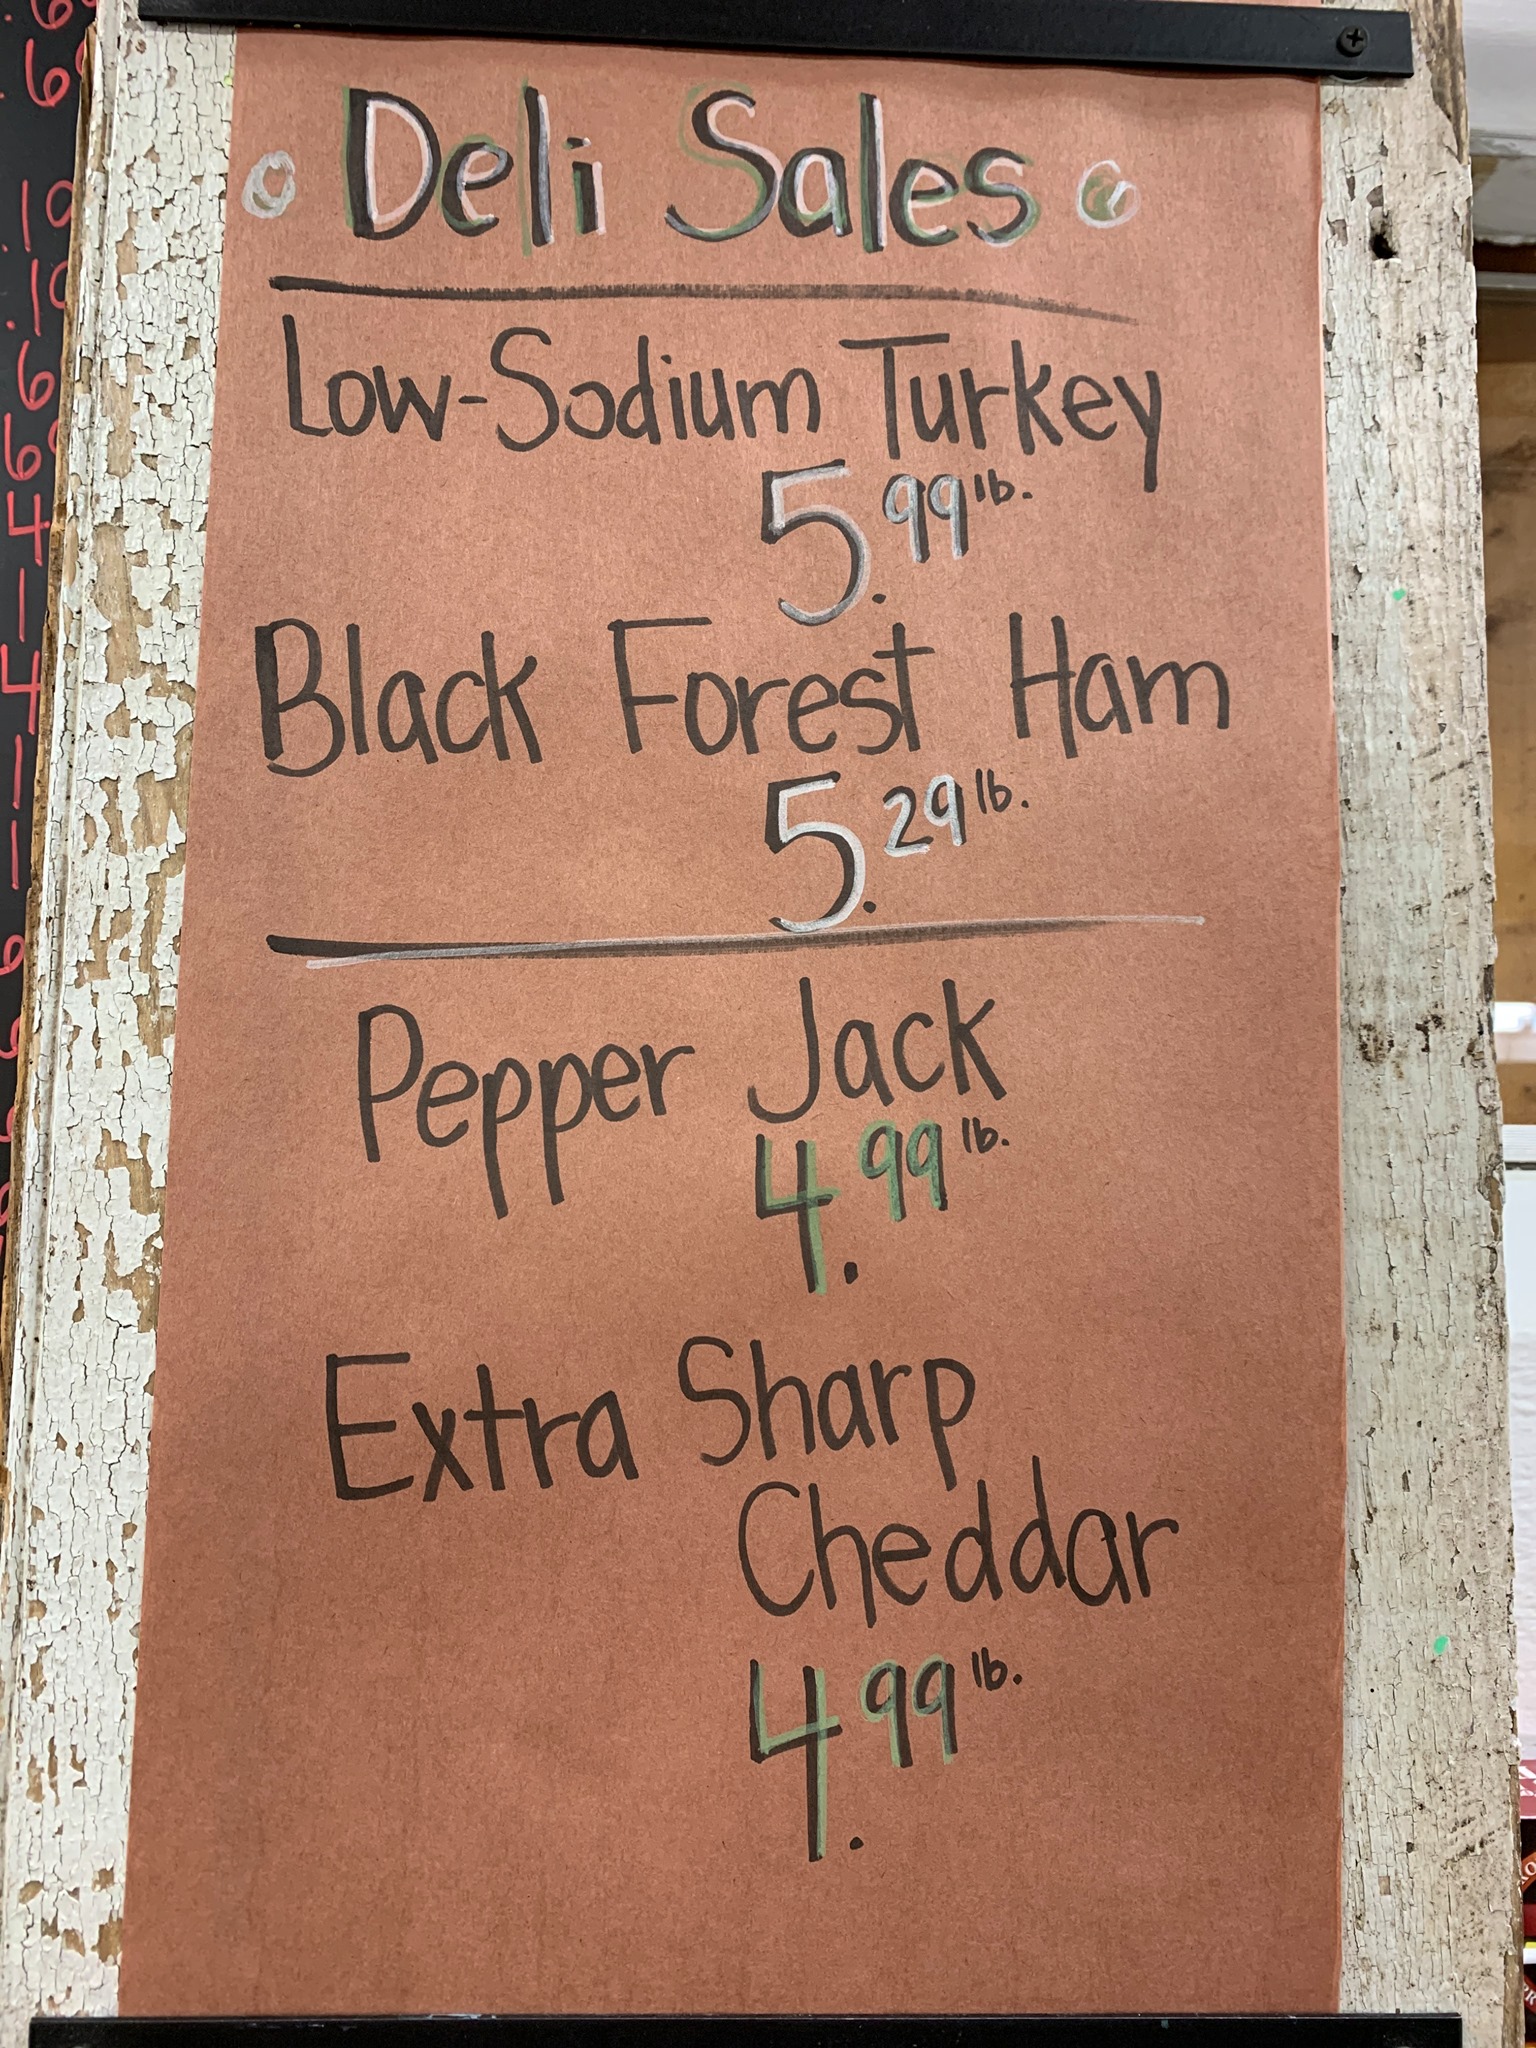 Deli Sales
Low-Sodium Turkey
5.99 lb.
Black Forest Ham
5.29 lb.
Pepper Jack
4.99 lb.
Extra Sharp
Cheddar
4.99 lb.